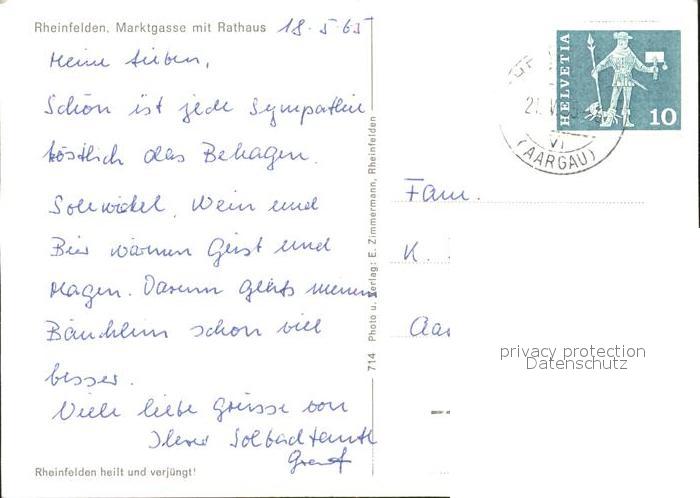 Rheinfelden. Marktgasse mit Rathaus 18.5.65
Meine Lieben,
Schon ist jede Sympathie
köstlich das Behagen.
Solewickel, Wein und
Bier wärmen Geist und
Magen. Darum gehts meinem
Bäuchlein schon viel
besser.
Viele liebe Grüsse von
Ihrer
Rheinfelden heilt und verjüngt!
714 Photo u. Verlag: E. Zimmermann, Rheinfelden
HELVETIA
10
(AARGAU)
Fam.
K.
Aa
privacy protection
Datenschutz